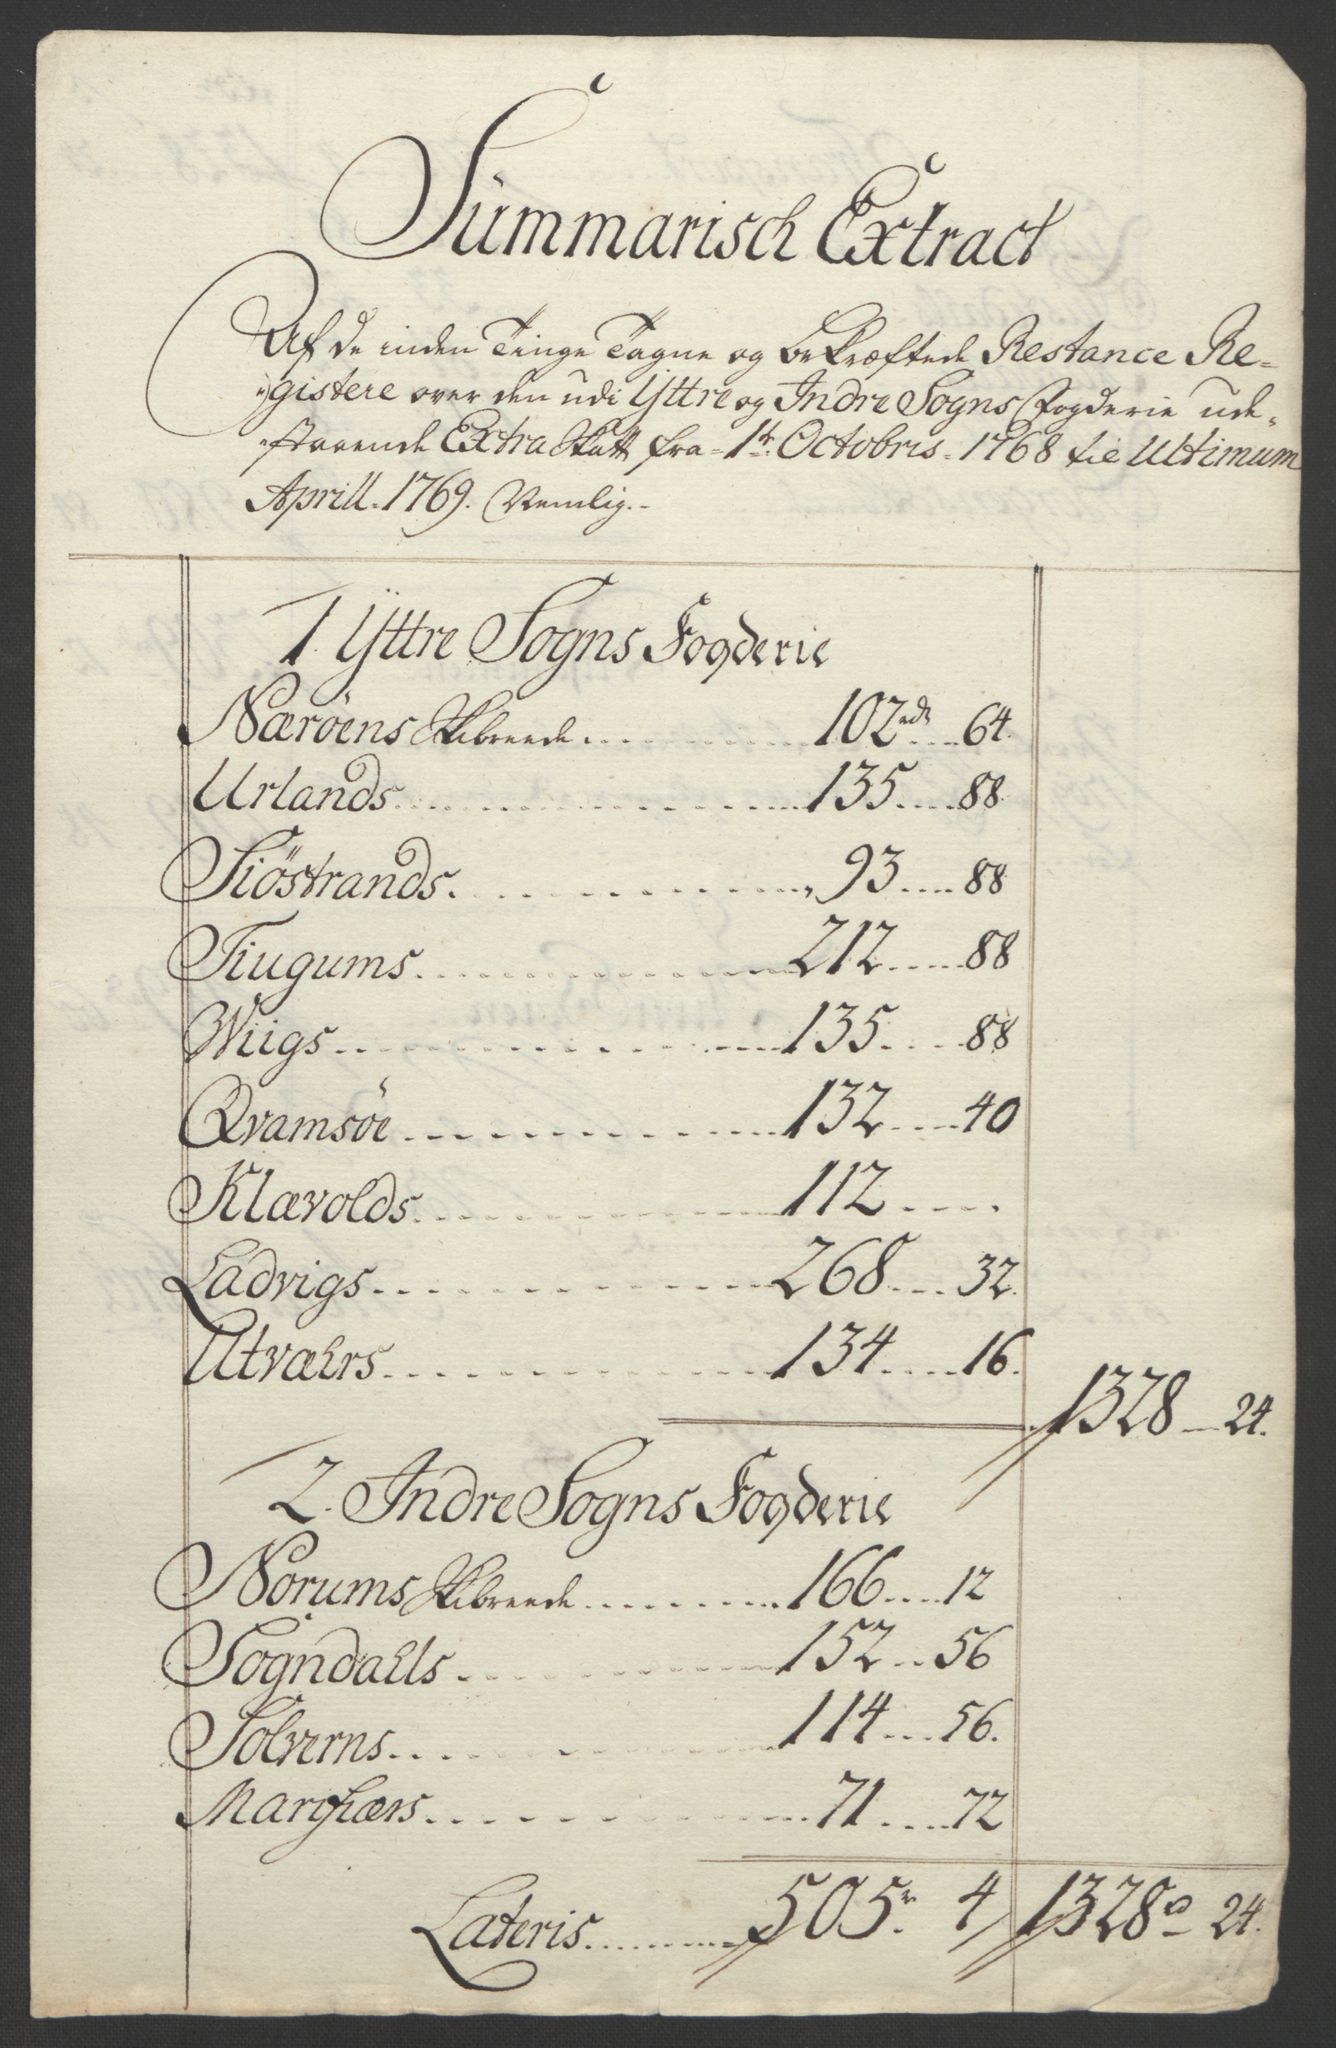 Summarisch Extract
Af de inden Tinge Tagne og bekræftede Restance Re-
gistere over den udi Yttre og Indre Sogns Fogderie ude-
staaende Extra Skatt fra 1te Octobris 1768 til Ultimum
Aprill. 1769. Nemlig.
1 Yttre Sogns Fogderie
Næröens Skibreede 102 rdr 64.
Urlands 135 88
Siöstrands 93 88
Tiugums 212 88
Wiigs 135 88
Qvamsöe 132 40
Klævolds 112
Ladvigs 268 32.
Utvæhrs 134 16.
1328 24.
2. Indre Sogns Fogderie
Norums Skibreede 166 12
Sogndahls 152 56
Solverns 114 56.
Marifiærs 71 72
Lateris 505 r 4 1328 24.